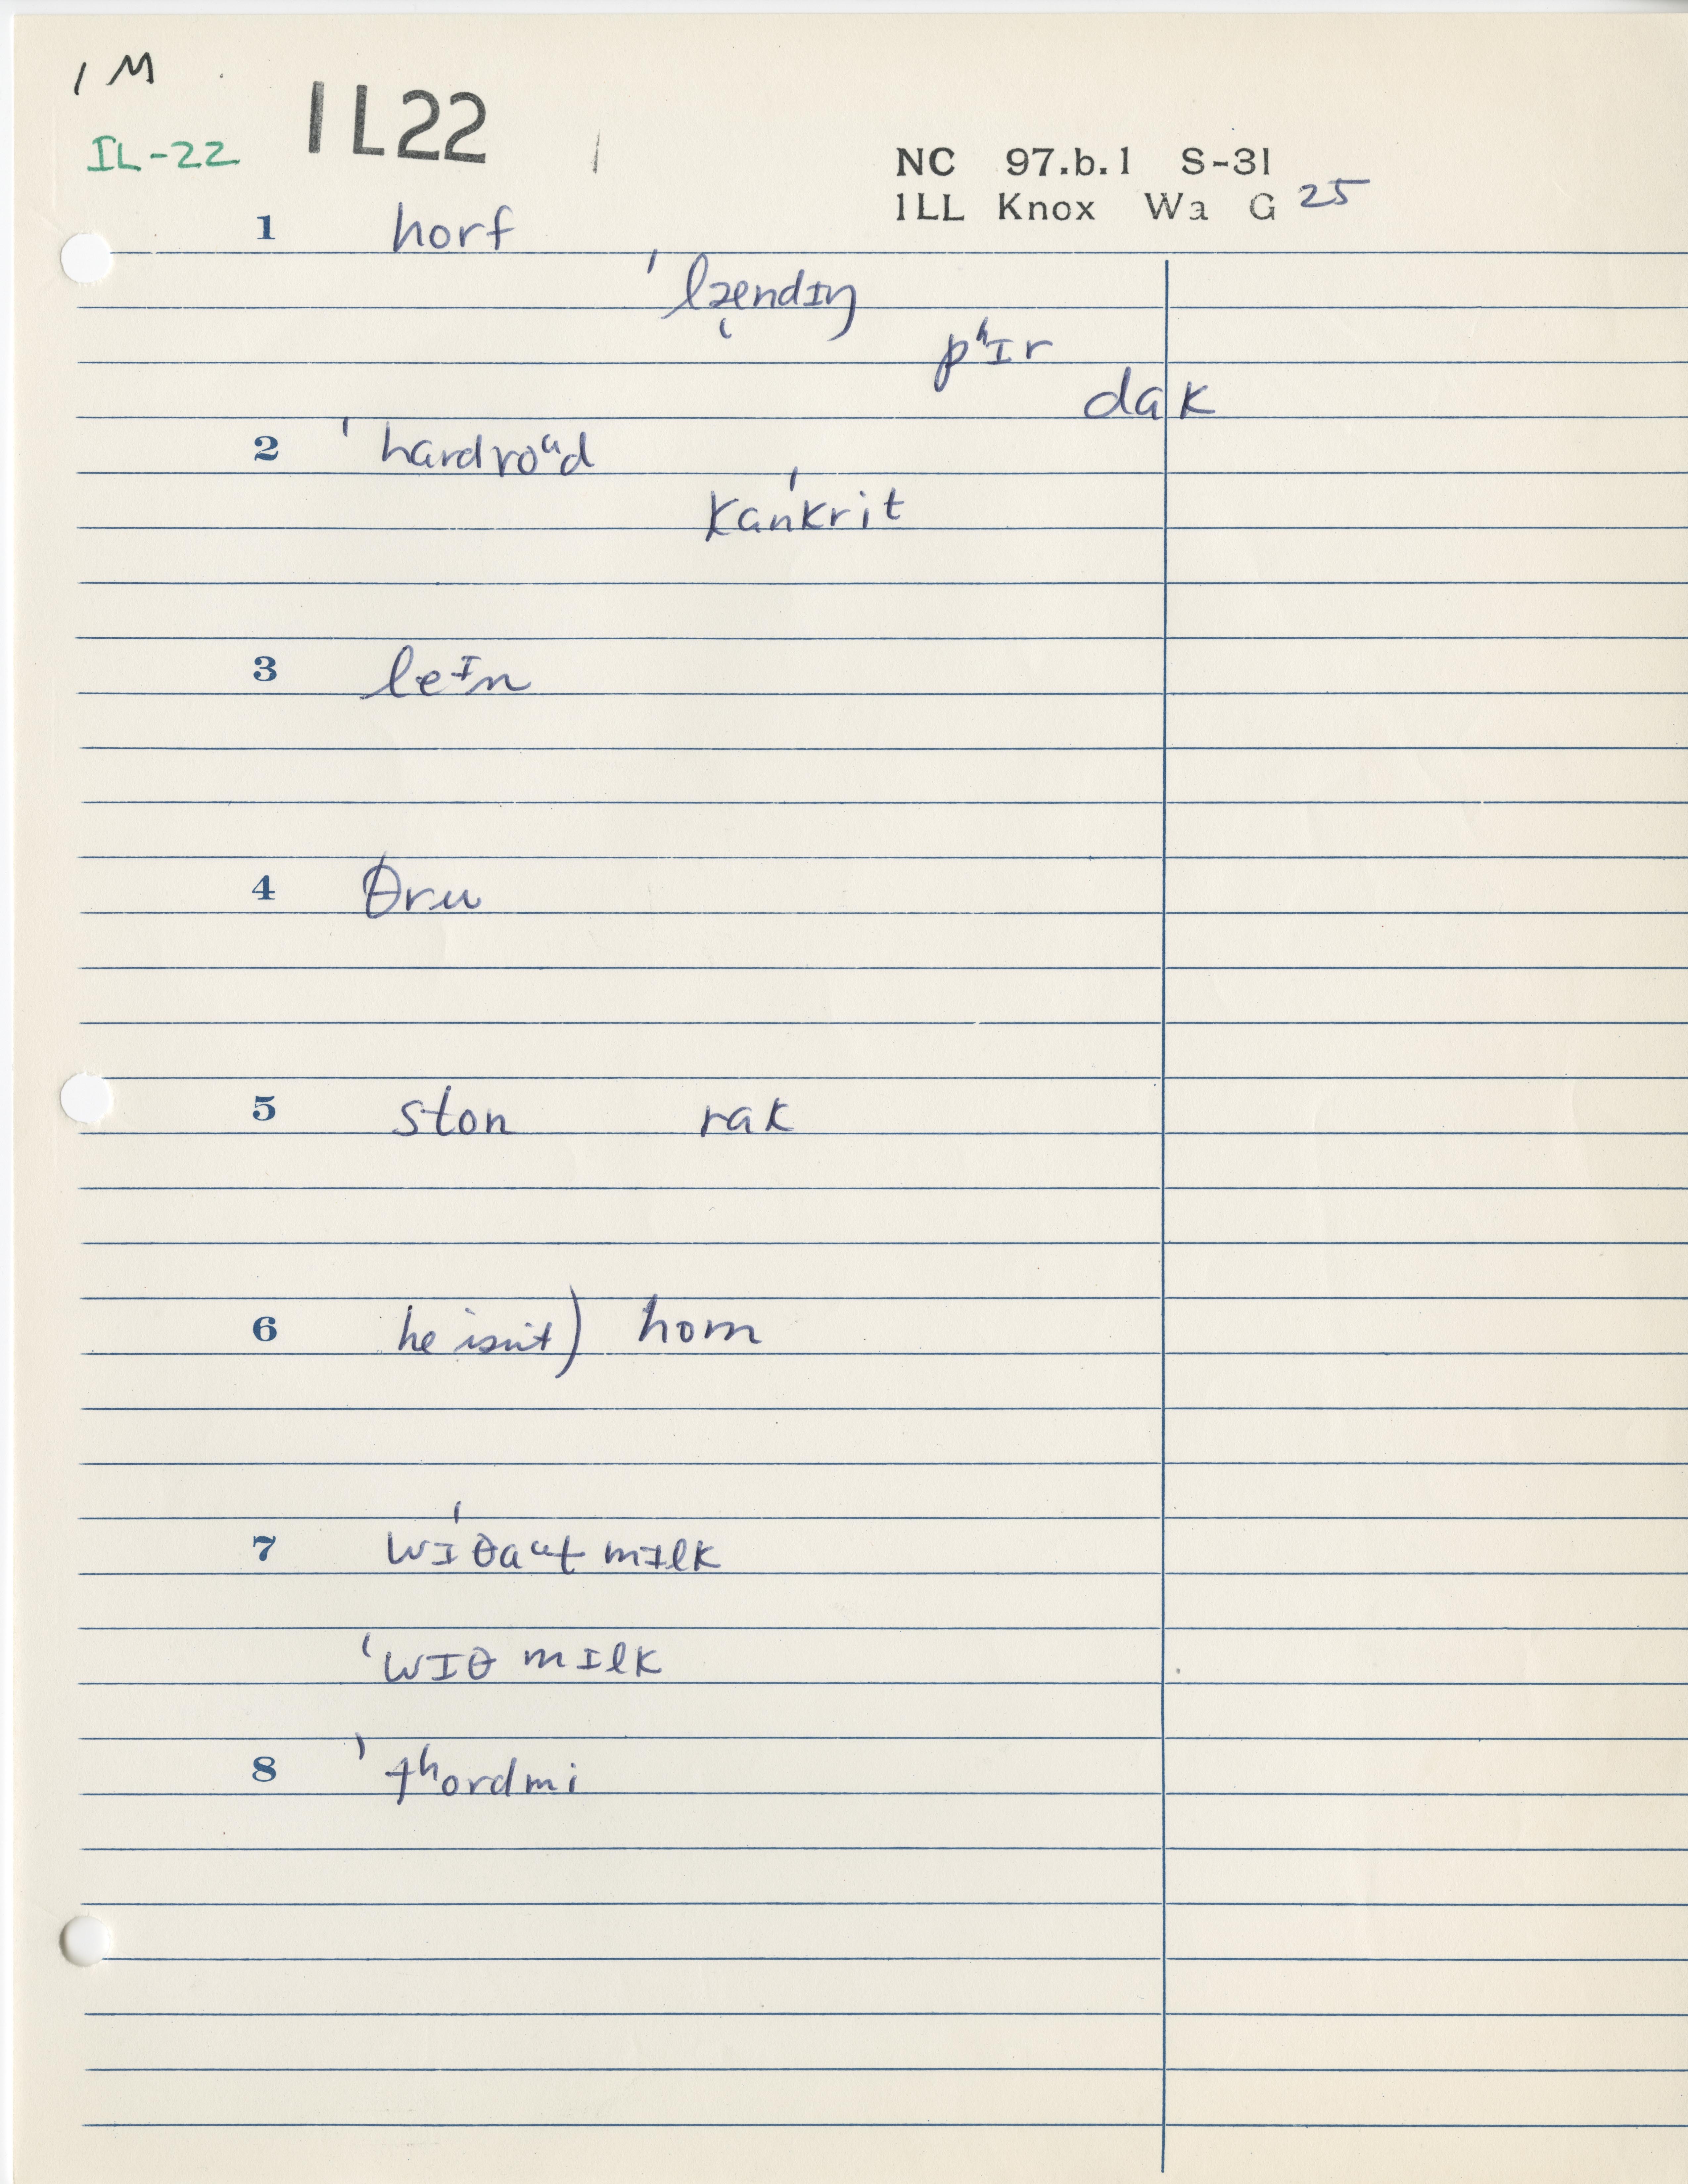 1 M
IL-22 1L22 1
NC 97.b.1 S-31
1LL Knox Wa G 25
1 horf
ˈlændɪŋ
pʰɪr
dak
2 ˈhardroᵘd
kanˈkrit
3 leᶦn
4 θru
5 ston rak
6 he isn't) hom
7 wɪˈθaᵘt mɪlk
ˈwɪθ mɪlk
8 ˈtʰordmi